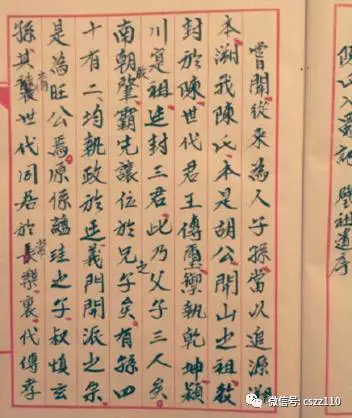 陳氏入記
祖遺序
嘗聞從來為人子孫當以追源溯
本溯我陳氏本是胡公開山之祖敕
封於陳世代君王傳璽執乾坤潁
川寔祖迄封三君此乃父子三人矣
南朝肇霸先讓位於兄之子矣有孫四
十有二均執政於廷義門開派之祭
是為旺公焉原係諱珪之子叔慎玄
孫其襲世代同居於長樂裏代傳孝
微信号: cszz110